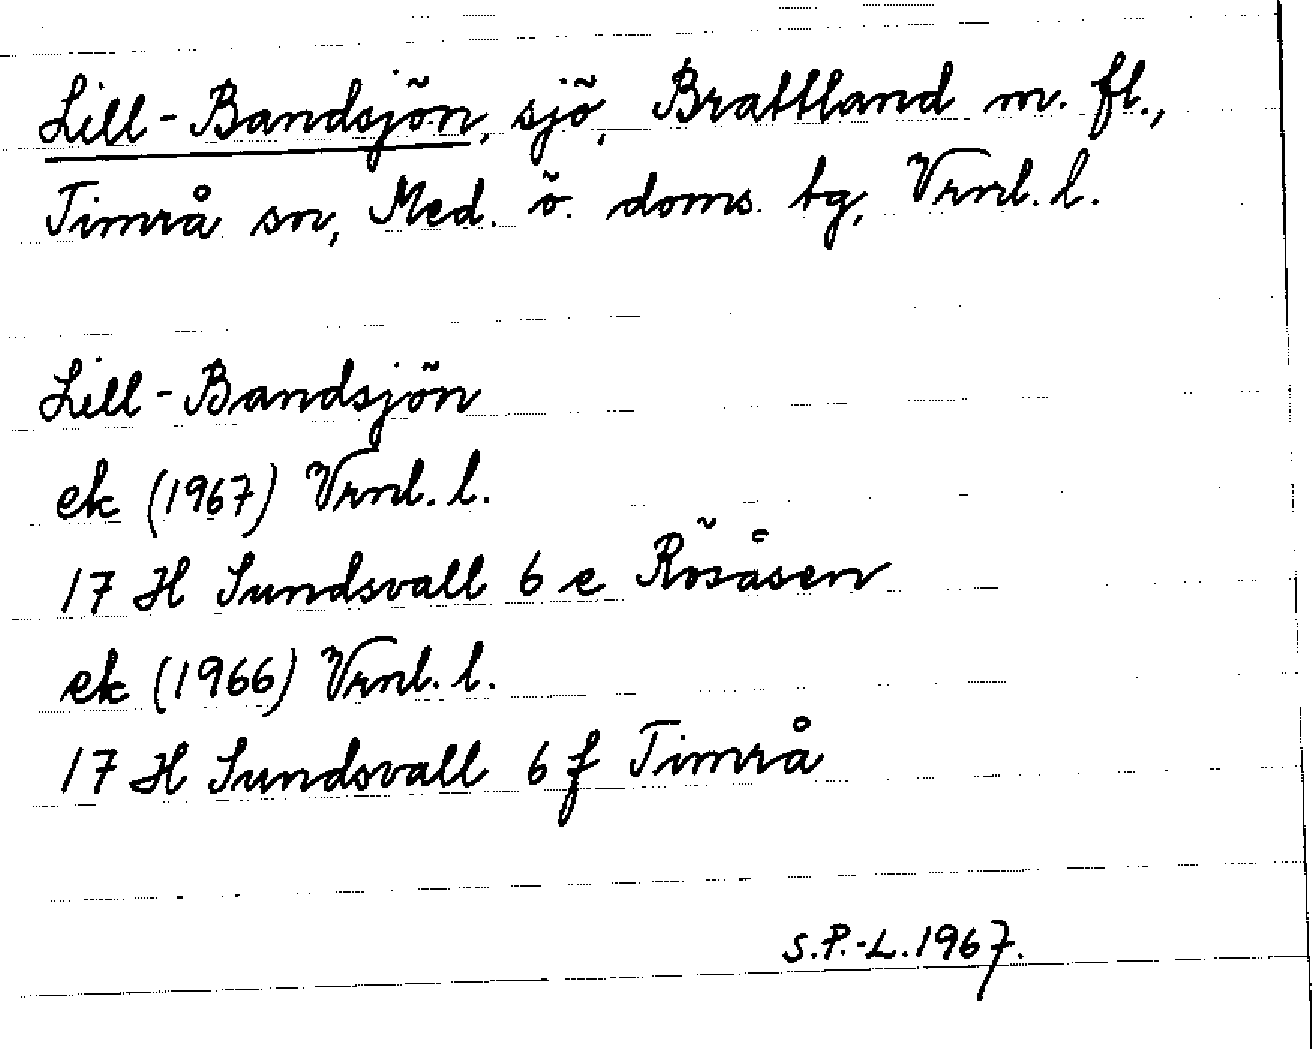 Lill-Bandsjön, sjö, Brattland m. fl.,
Timrå sn, Med. ö. doms. tg, Vrnl. l.
Lill-Bandsjön
ek (1967) Vrnl. l.
17 H Sundsvall 6 e Rösåsen
ek (1966) Vrnl. l.
17 H Sundsvall 6 f Timrå
S.P.-L. 1967.